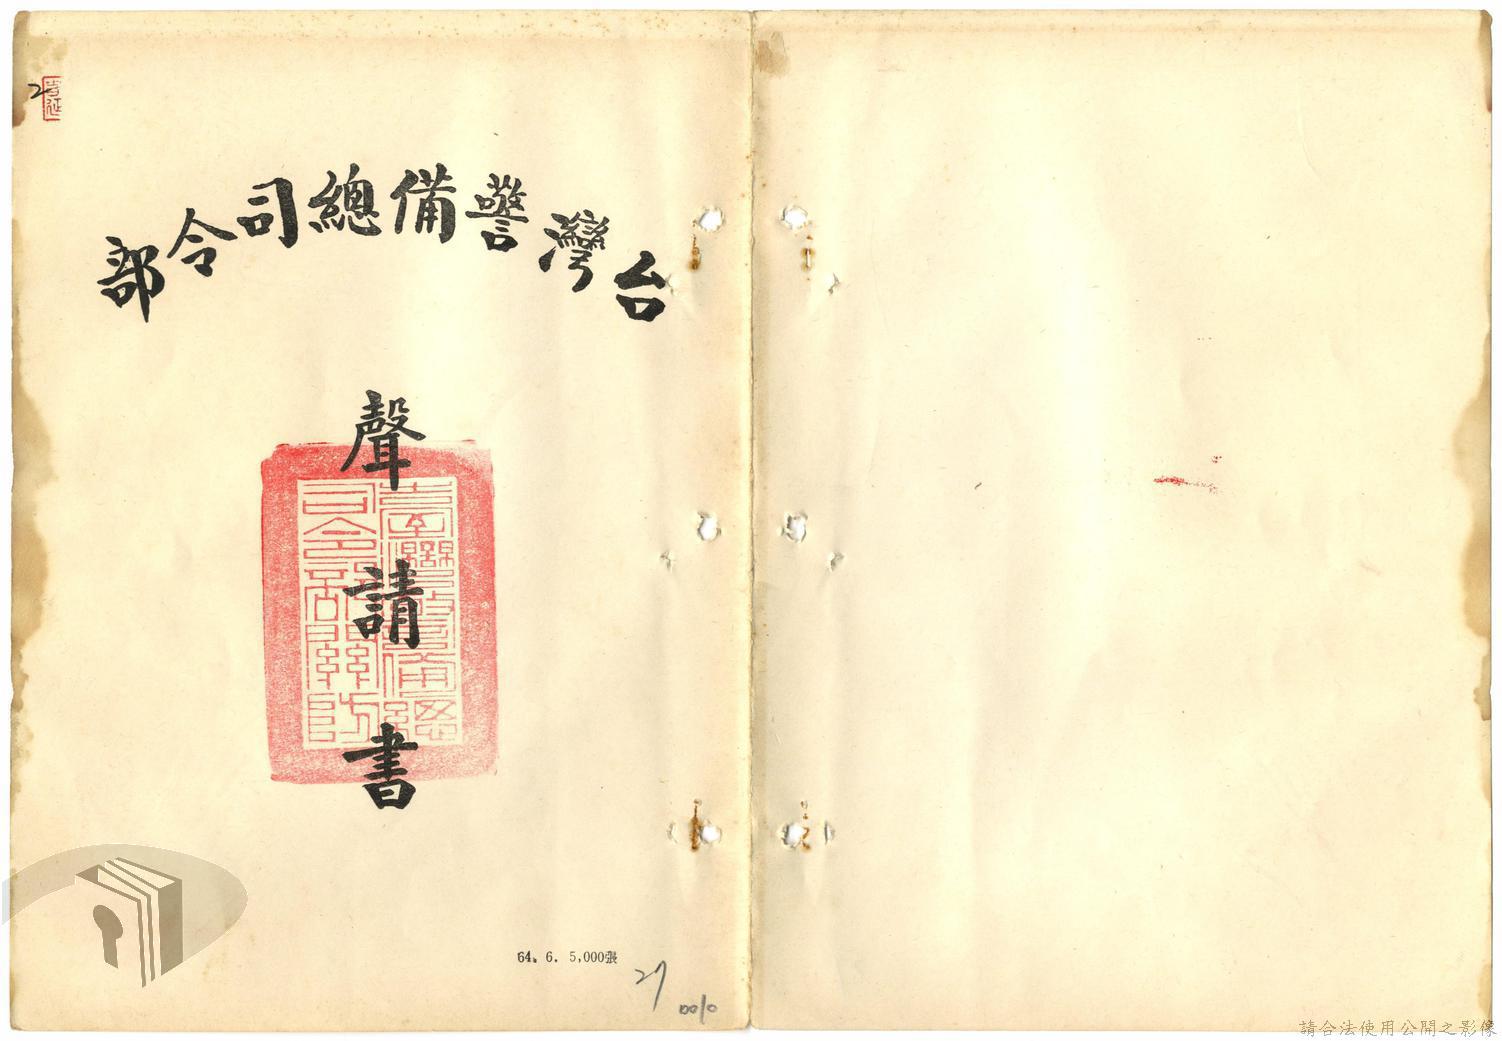 台灣警備總司令部
聲請書
臺灣警備總
司令部關防
64. 6. 5,000張
27
0010
2
請合法使用公開之影像